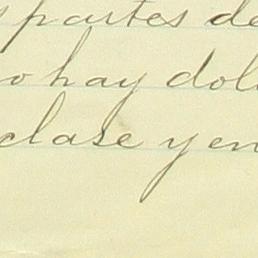 partes de
o hay dol
clase y en